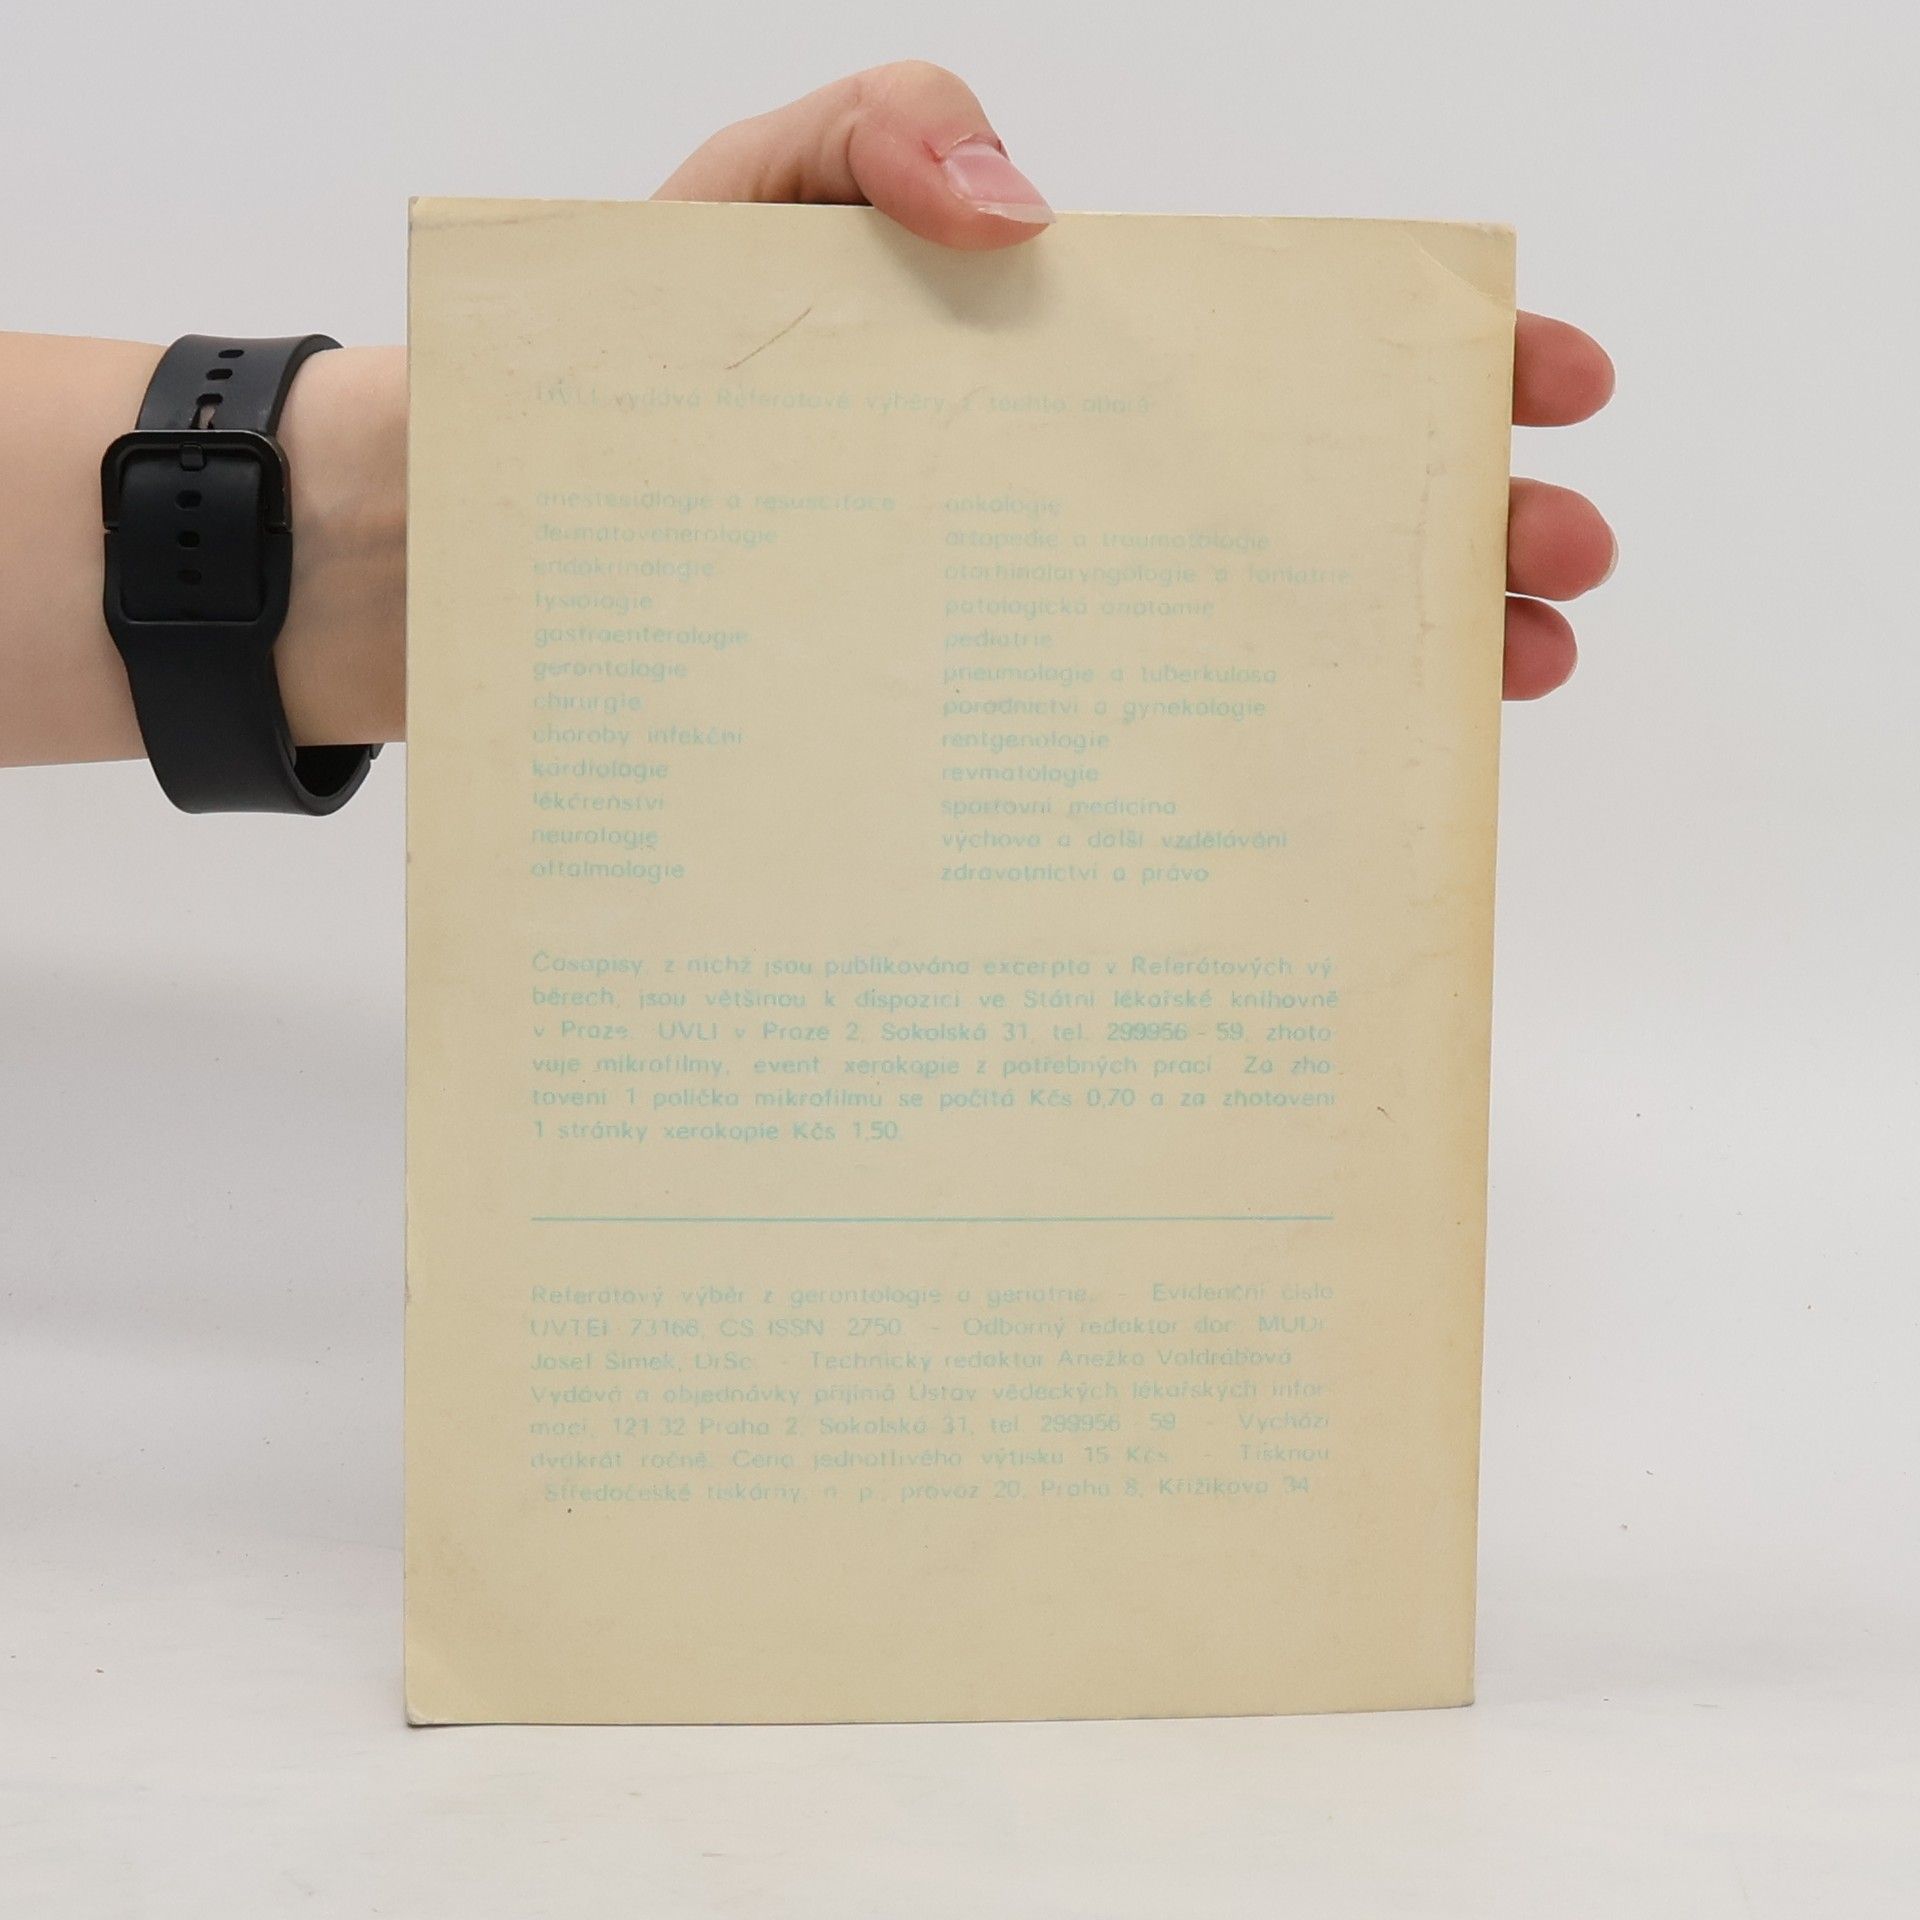 ÚVLI vydává Referátové výběry z těchto oborů
anestesiologie a resuscitace
dermatovenerologie
endokrinologie
fysiologie
gastroenterologie
gerontologie
chirurgie
choroby infekční
kardiologie
lékárenství
neurologie
oftalmologie
onkologie
ortopedie a traumatologie
otorhinolaryngologie a foniatrie
patologická anatomie
pediatrie
pneumologie a tuberkulosa
porodnictví a gynekologie
rentgenologie
revmatologie
sportovní medicína
výchova a další vzdělávání
zdravotnictví a právo
Časopisy, z nichž jsou publikována excerpta v Referátových vý-
běrech, jsou většinou k dispozici ve Státní lékařské knihovně
v Praze. ÚVLI v Praze 2, Sokolská 31, tel. 299956 - 59, zhoto-
vuje mikrofilmy, event. xerokopie z potřebných prací. Za zho-
tovení 1 políčka mikrofilmu se počítá Kčs 0,70 a za zhotovení
1 stránky xerokopie Kčs 1,50.
Referátový výběr z gerontologie a geriatrie. - Evidenční číslo
ÚVTEI 73166, ČS ISSN 2750. - Odborný redaktor doc. MUDr.
Josef Šimek, DrSc. - Technický redaktor Anežka Voldrábová
Vydává a objednávky přijímá Ústav vědeckých lékařských infor-
mací, 121 32 Praha 2, Sokolská 31, tel. 299956 - 59 - Vychází
dvakrát ročně. Cena jednotlivého výtisku 15 Kčs. - Tisknou
Středočeské tiskárny, n. p., provoz 20, Praha 8, Křižíkova 34